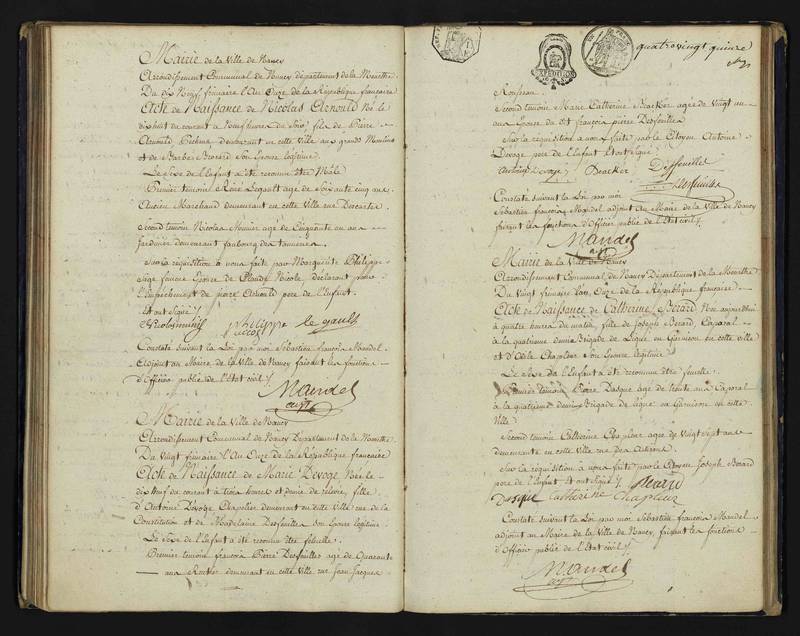 Mairie de la Ville de Nancy
Arrondissement Communal de Nancy département de la Meurthe.
Du dix Neuf frimaire l'An Onze de la République francaise
Acte de Naissance de Nicolas Arnould Né le
dix huit du courant à Neuf heures du Soir, fils de Pierre
Arnould demeurant en cette Ville aux grands Moulins
et de Barbe Son Epouse légitime.
Le Sexe de l'Enfant a été reconnu être Mâle
Premier témoin René Legault age de Soixante cinq ans
Ancien Marchand demeurant en cette Ville rue Descartes
Second temoin Nicolas agé de Cinquante un ans
Jardinier demeurant faubourg des tanneries.
Sur la réquisition à nous faite par Marguerite Philippe
Sage femme Epouse de Claude Nicole, déclarant pour
l'Empechement de pierre Arnould pere de l'Enfant.
Et ont Signé
philippe le gault
Constaté suivant la Loi par moi Sébastien francois Mandel
Adjoint au Maire de la Ville de Nancy faisant les fonctions
d'Officier public de l'Etat civil
Mandel
adjt
Mairie de la Ville de Nancy
Arrondissement Communal de Nancy Département de la Meurthe
Du Vingt frimaire l'An Onze de la République francaise
Acte de Naissance de Marie Devoge Née le
dix Neuf du courant à trois heures et demie de relevée, fille
d'Antoine Devoge Chapelier demeurant en cette Ville rue de la
Constitution et de Madelaine Desfeuilles Son Epouse légitime.
Le Sexe de l'Enfant a été reconnu être femelle.
Premier temoin francois Pierre Desfeuilles age de Quarante
ans Rentier demeurant en cette Ville rue Jean Jacques
quatrevingt quinze
Rousseau.
Second temoin Marie Catherine Backer agée de Vingt un
ans Epouse du dit francois pierre Desfeuilles
Sur la réquisition à nous faite par le Citoyen Antoine
Devoge pere de l'Enfant Et ont Signé
Antoine Devoge Backer Desfeuilles
Constaté suivant la Loi par moi
Sébastien francois Mandel adjoint au Maire de la Ville de Nancy
faisant les fonctions d'Officier public de l'Etat civil
Mandel
adjt
Mairie de la Ville de Nancy
Arrondissement Communal de Nancy Département de la Meurthe
Du Vingt frimaire l'an Onze de la République francaise
Acte de Naissance de Catherine Berard Née aujourdhui
à quatre heures du matin, fille de Joseph Berard, Caporal
à la quatrieme demie Brigade de Ligne en Garnison en cette ville
et d'Odile Chapleur Son Epouse légitime
Le Sexe de l'Enfant a été reconnu être femelle.
Premier temoin Pierre Dasque agé de trente ans Caporal
à la quatrieme demie Brigade de ligne en Garnison en cette
Ville
Second temoin Catherine Chapleur agée de Vingt sept ans
demeurante en cette Ville rue des Artisans.
Sur la réquisition à nous faite par le Citoyen Joseph Berard
pere de l'Enfant Et ont Signé Berard
Dasque Catherine Chapleur
Constaté suivant la Loi par moi Sébastien francois Mandel
adjoint au Maire de la Ville de Nancy, faisant les fonctions
d'Officier public de l'Etat civil
Mandel
adjt